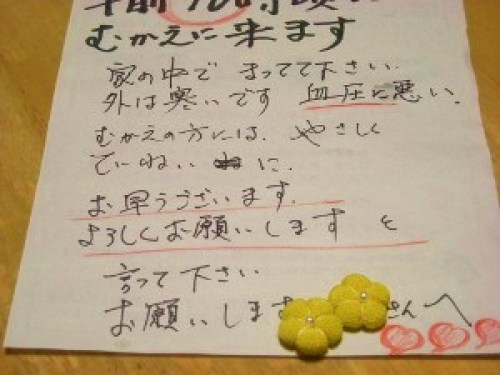 午前 時頃に
むかえに来ます
家の中で まってて下さい.
外は寒いです 血圧に悪い.
むかえの方には、やさしく
ていねい に.
お早うございます.
よろしくお願いします と
言って下さい
お願いします さんへ